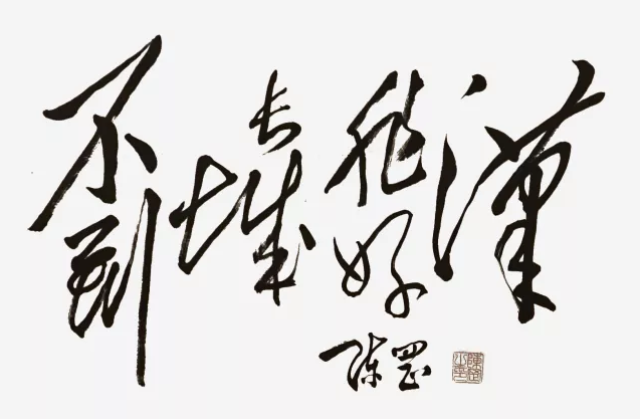 不到长城非好漢
陈罡